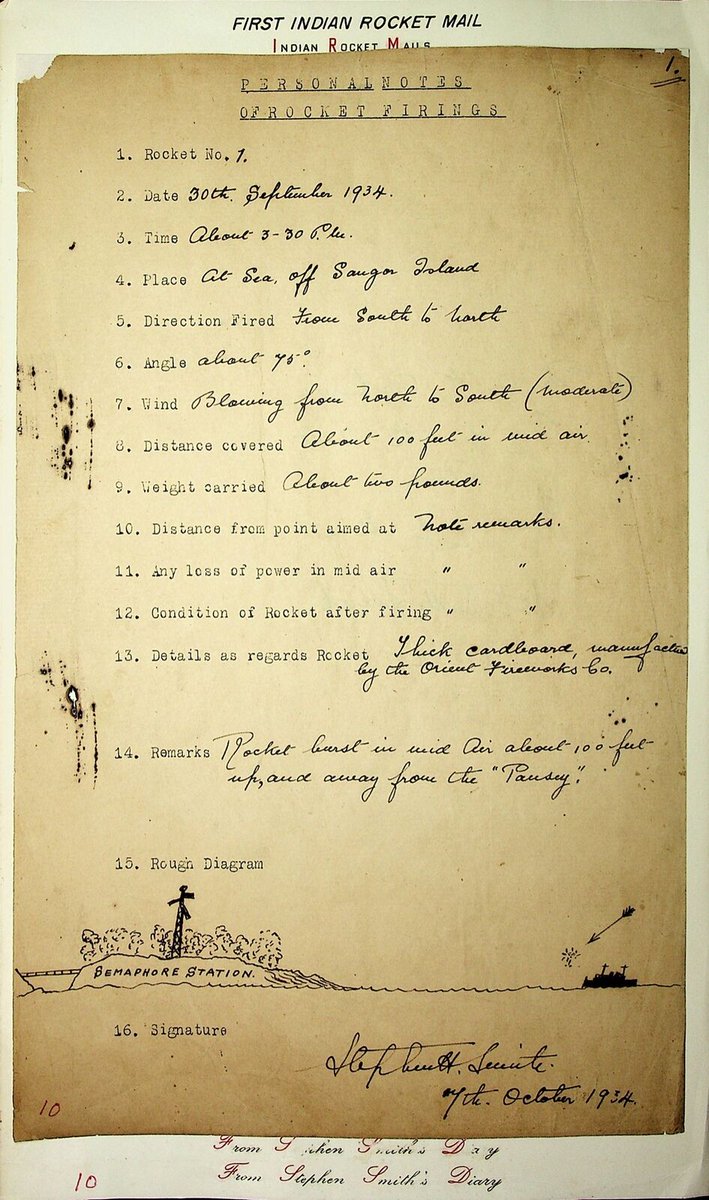 FIRST INDIAN ROCKET MAIL
INDIAN ROCKET MAILS
1.
PERSONAL NOTES
OF ROCKET FIRINGS
1. Rocket No. 1.
2. Date 30th. September 1934.
3. Time About 3-30 P.m.
4. Place At Sea, off Saugor Island
5. Direction Fired From South to North
6. Angle about 75°.
7. Wind Blowing from North to South (Moderate)
8. Distance covered About 100 feet in mid air.
9. Weight carried About two pounds.
10. Distance from point aimed at Note remarks.
11. Any loss of power in mid air " "
12. Condition of Rocket after firing " "
13. Details as regards Rocket Thick cardboard, manufactured
by the Orient Fireworks Co.
14. Remarks Rocket burst in mid Air about 100 feet
up, and away from the "Pansy".
15. Rough Diagram
SEMAPHORE STATION.
16. Signature
Stephen H. Smith.
7th. October 1934.
10
From Stephen Smith's Diary
10
From Stephen Smith's Diary